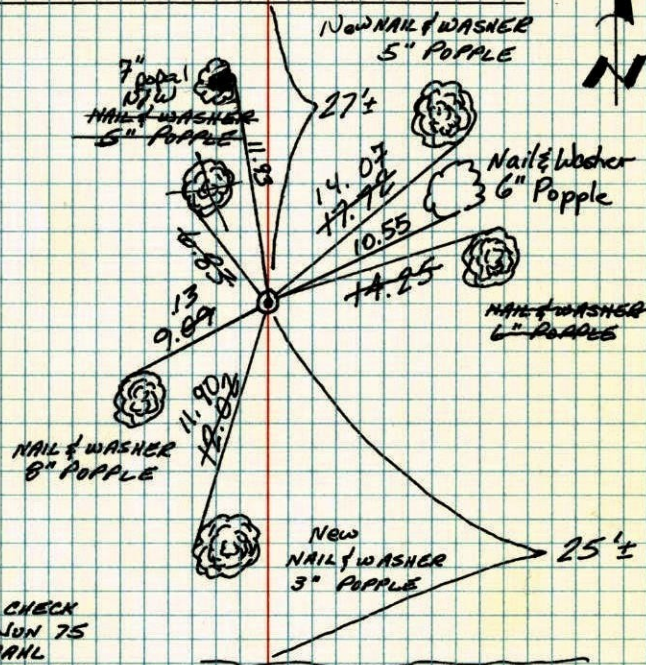 New NAIL & WASHER
5" POPPLE
N
7" popal
N/W
NAIL & WASHER
5" POPPLE
27'±
11.93
14.07
17.92
Nail & Washer
6" Popple
10.55
14.25
6.83
NAIL & WASHER
6" POPPLE
.13
9.09
11.90
12.02
NAIL & WASHER
8" POPPLE
New
NAIL & WASHER
3" POPPLE
25'±
CHECK
JUN 75